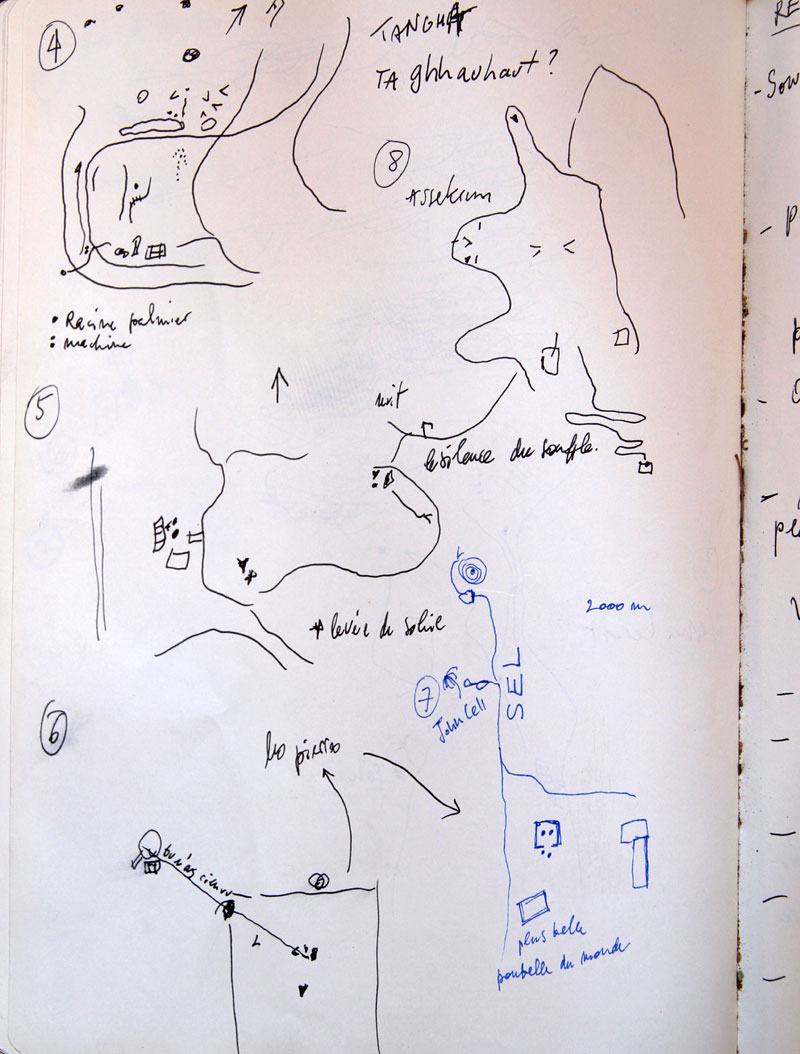 4
TANGHA
TA ghhauhaut?
8
Assekrem
• Racine palmier
: machine
5
nuit
le silence du souffle.
levée du soleil
2000 m
SEL
7
John Cell
6
les pierres
plus belle
poubelle du monde
RE
- Sou
- P